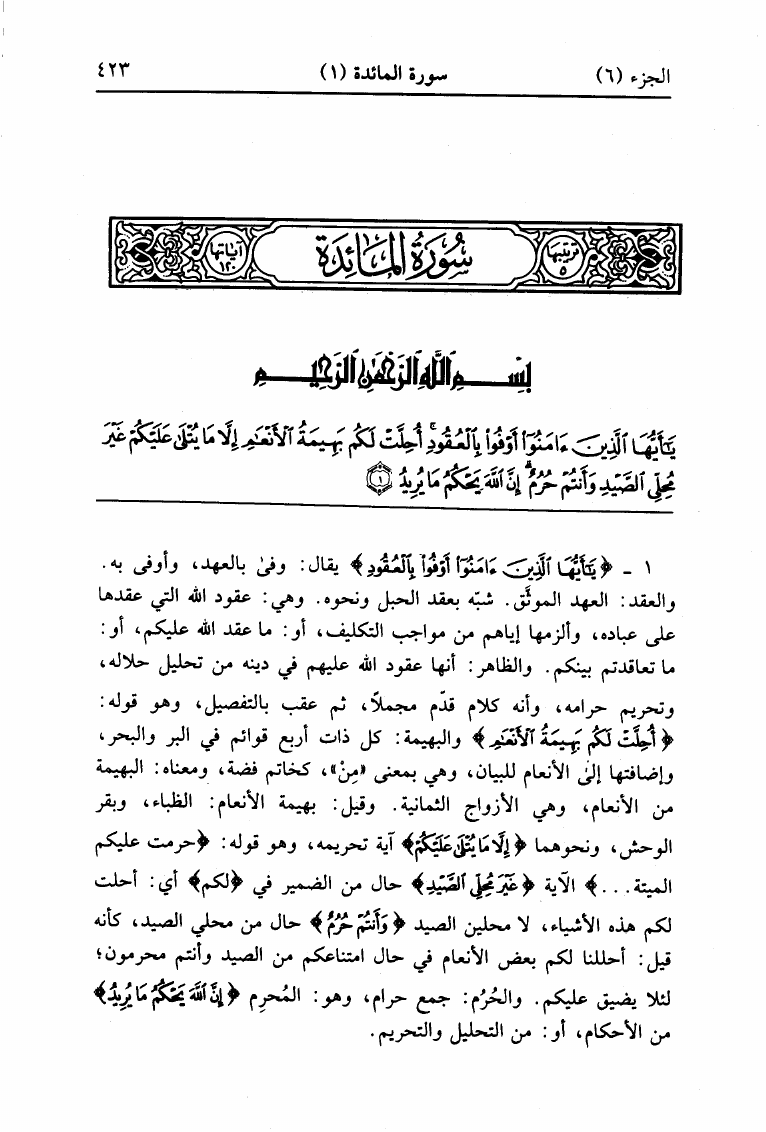 الجزء (٦) سورة المائدة (١) ٤٢٣
ترتيبها ٥ سُورَةُ المَائِدَةِ آياتها ١٢٠
بِسْمِ اللَّهِ الرَّحْمَٰنِ الرَّحِيمِ
يَٰٓأَيُّهَا ٱلَّذِينَ ءَامَنُوٓا۟ أَوْفُوا۟ بِٱلْعُقُودِ ۚ أُحِلَّتْ لَكُم بَهِيمَةُ ٱلْأَنْعَٰمِ إِلَّا مَا يُتْلَىٰ عَلَيْكُمْ غَيْرَ
مُحِلِّى ٱلصَّيْدِ وَأَنتُمْ حُرُمٌ ۗ إِنَّ ٱللَّهَ يَحْكُمُ مَا يُرِيدُ ١
١ - ﴿يَٰٓأَيُّهَا ٱلَّذِينَ ءَامَنُوٓا۟ أَوْفُوا۟ بِٱلْعُقُودِ﴾ يقال: وفىٰ بالعهد، وأوفى به.
والعقد: العهد الموثَّق. شبّه بعقد الحبل ونحوه. وهي: عقود الله التي عقدها
على عباده، وألزمها إياهم من مواجب التكليف، أو: ما عقد الله عليكم، أو:
ما تعاقدتم بينكم. والظاهر: أنها عقود الله عليهم في دينه من تحليل حلاله،
وتحريم حرامه، وأنه كلام قدّم مجملاً، ثم عقب بالتفصيل، وهو قوله:
﴿أُحِلَّتْ لَكُم بَهِيمَةُ ٱلْأَنْعَٰمِ﴾ والبهيمة: كل ذات أربع قوائم في البر والبحر،
وإضافتها إلىٰ الأنعام للبيان، وهي بمعنى «مِنْ»، كخاتم فضة، ومعناه: البهيمة
من الأنعام، وهي الأزواج الثمانية. وقيل: بهيمة الأنعام: الظباء، وبقر
الوحش، ونحوهما ﴿إِلَّا مَا يُتْلَىٰ عَلَيْكُمْ﴾ آية تحريمه، وهو قوله: ﴿حرمت عليكم
الميتة...﴾ الآية ﴿غَيْرَ مُحِلِّى ٱلصَّيْدِ﴾ حال من الضمير في ﴿لكم﴾ أي: أحلت
لكم هذه الأشياء، لا محلين الصيد ﴿وَأَنتُمْ حُرُمٌ﴾ حال من محلي الصيد، كأنه
قيل: أحللنا لكم بعض الأنعام في حال امتناعكم من الصيد وأنتم محرمون؛
لئلا يضيق عليكم. والحُرُم: جمع حرام، وهو: المُحرِم ﴿إِنَّ ٱللَّهَ يَحْكُمُ مَا يُرِيدُ﴾
من الأحكام، أو: من التحليل والتحريم.